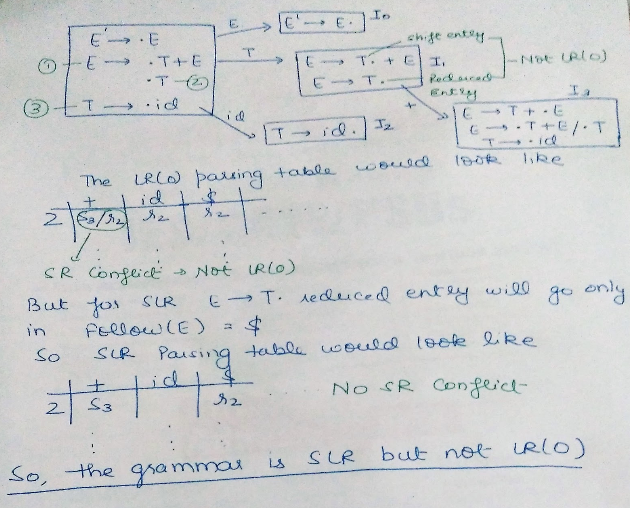 E' → ·E
① E → ·T+E
·T ②
③ T → ·id
E
E' → E· I0
T
E → T·+E I1
E → T·
shift entry
Reduced Entry
Not LR(0)
id
T → id· I2
+
I3
E → T+·E
E → ·T+E/·T
T → ·id
The LR(0) parsing table would look like
+ id $
2 S3/r2 r2 r2 ......
SR Conflict → Not LR(0)
But for SLR E → T· reduced entry will go only
in Follow(E) = $
So SLR Parsing table would look like
+ id $
2 S3 r2 No SR Conflict
So, the grammar is SLR but not LR(0)